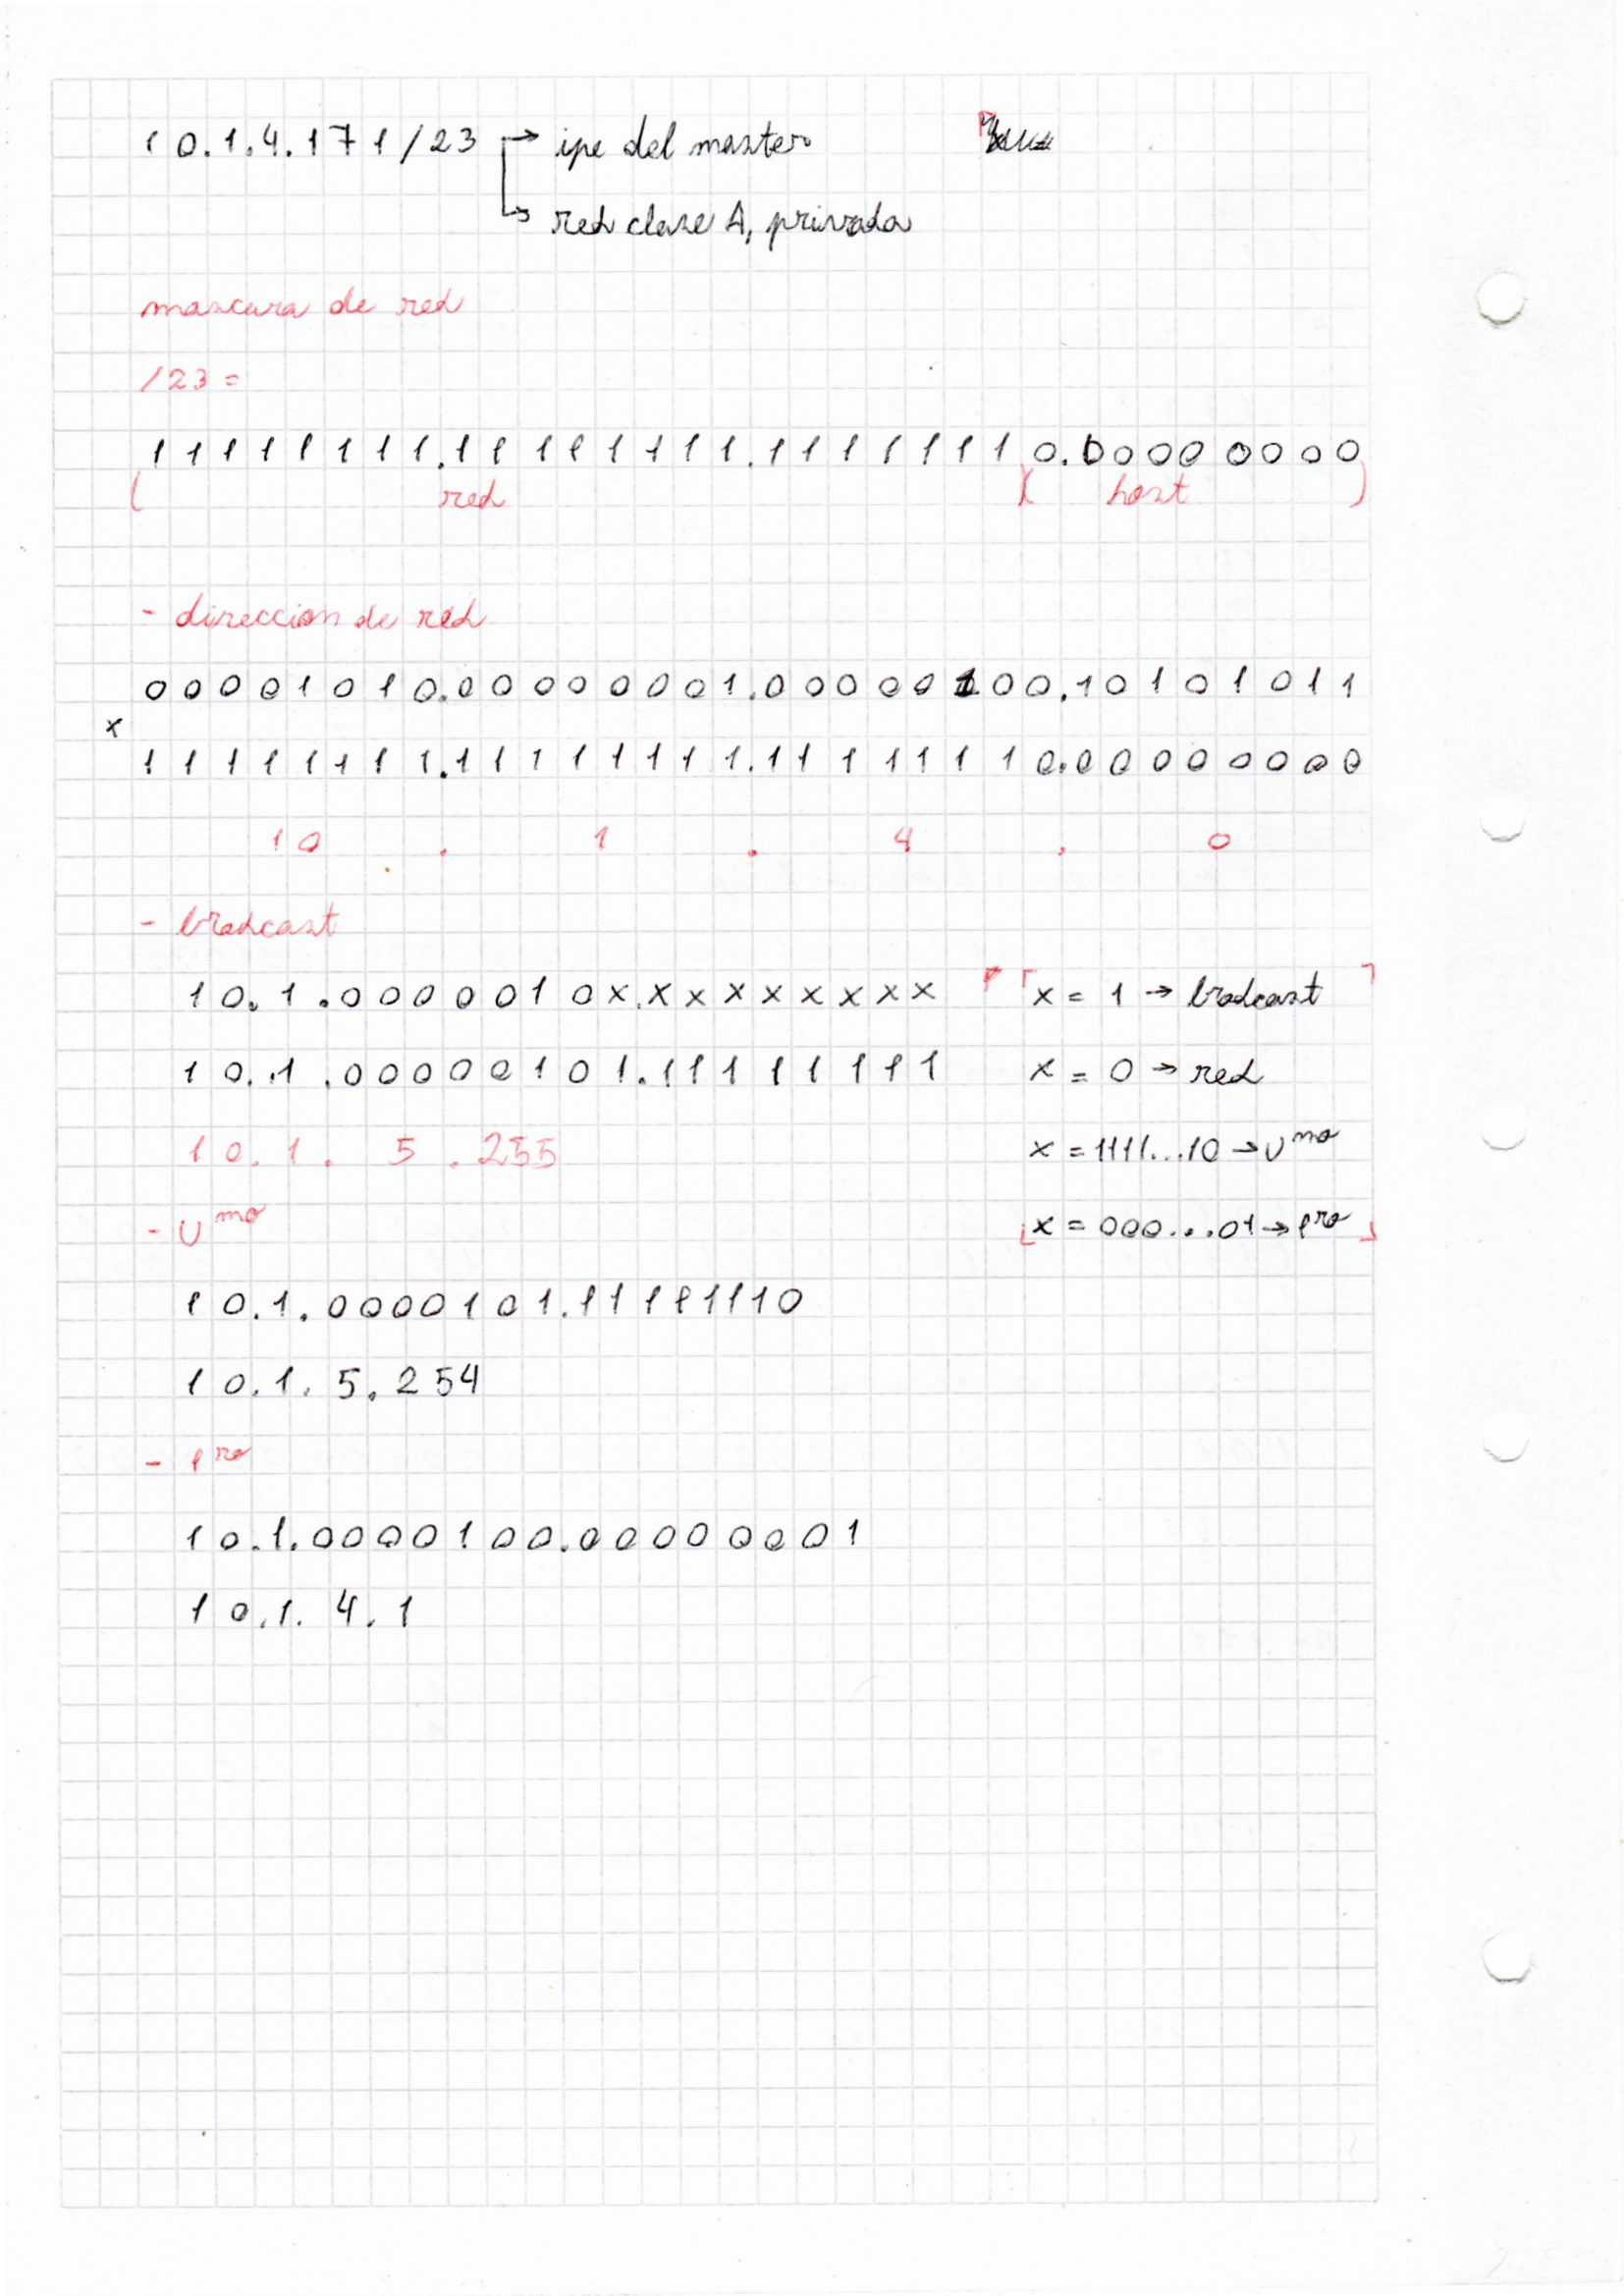 10.1.4.171/23 → ipe del master
↳ red clase A, privada
mascara de red
/23 =
11111111.11111111.11111110.00000000
( red )( host )
- direccion de red
00001010.00000001.00000100.10101011
x
11111111.11111111.11111110.00000000
10 . 1 . 4 . 0
- bradcast
10.1.0000010x.xxxxxxxxx x = 1 → bradcast
10.1.00000101.11111111 x = 0 → red
10.1. 5 .255 x = 1111...10 → Uᵐᵒ
- Uᵐᵒ x = 000...01 → 1ʳᵒ
10.1.0000101.11111110
10.1.5.254
- 1ʳᵒ
10.1.0000100.00000001
10.1.4.1